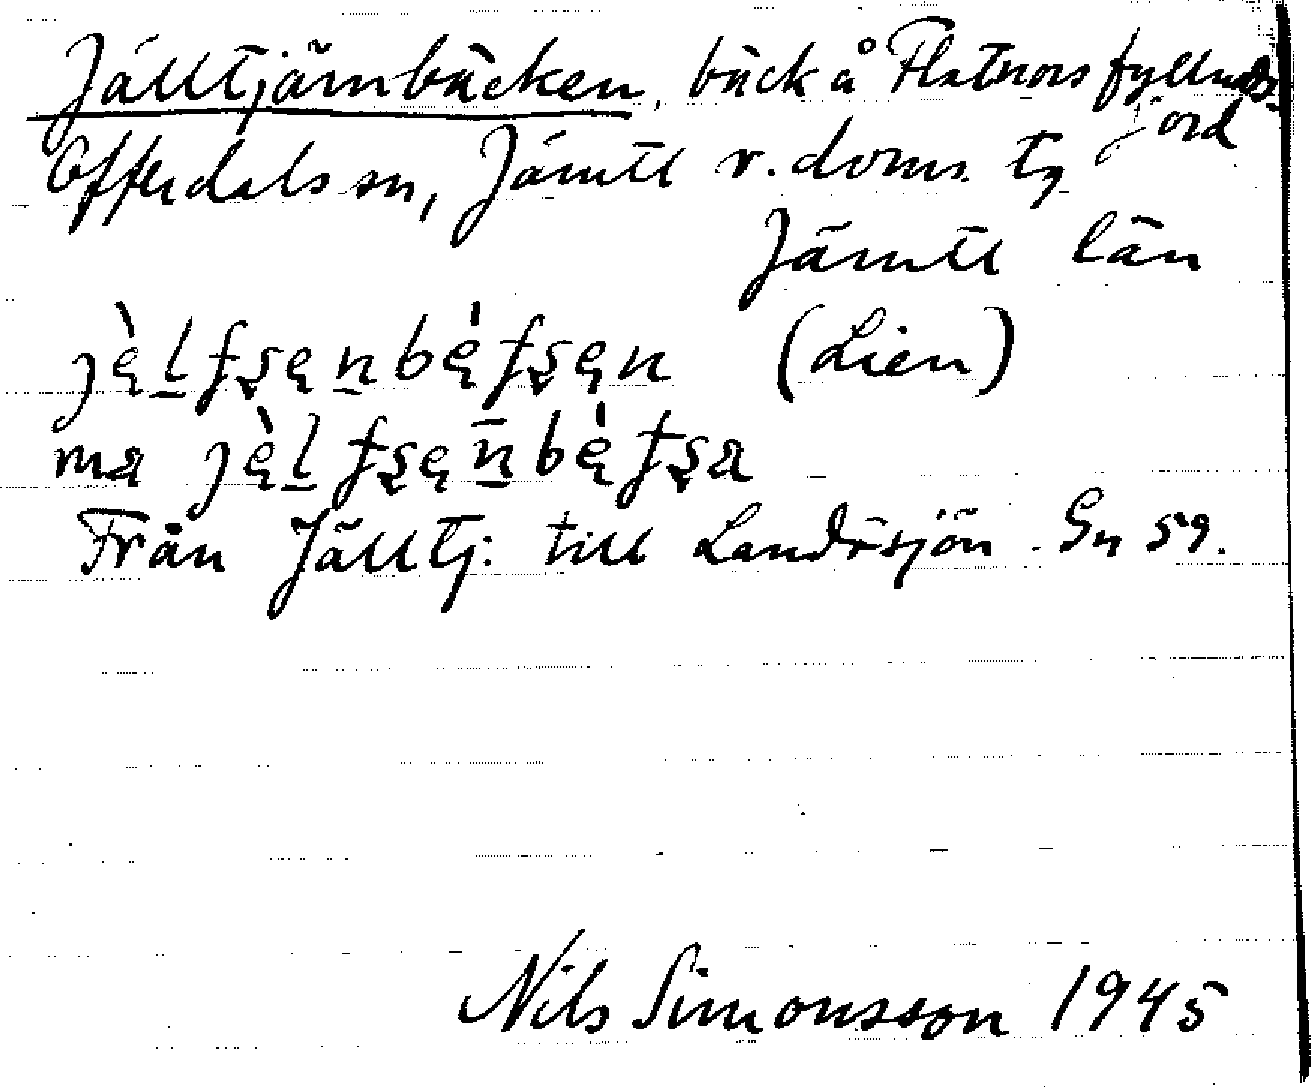 Jälltjärnbäcken, bäck å Flatnors fyllnads-
jord
Offerdals sn, Jämtl v. doms. tg
Jämtl län
(Lien)
ma
Från Jälltj: till Landösjön. Gn 59.
Nils Simonsson 1945